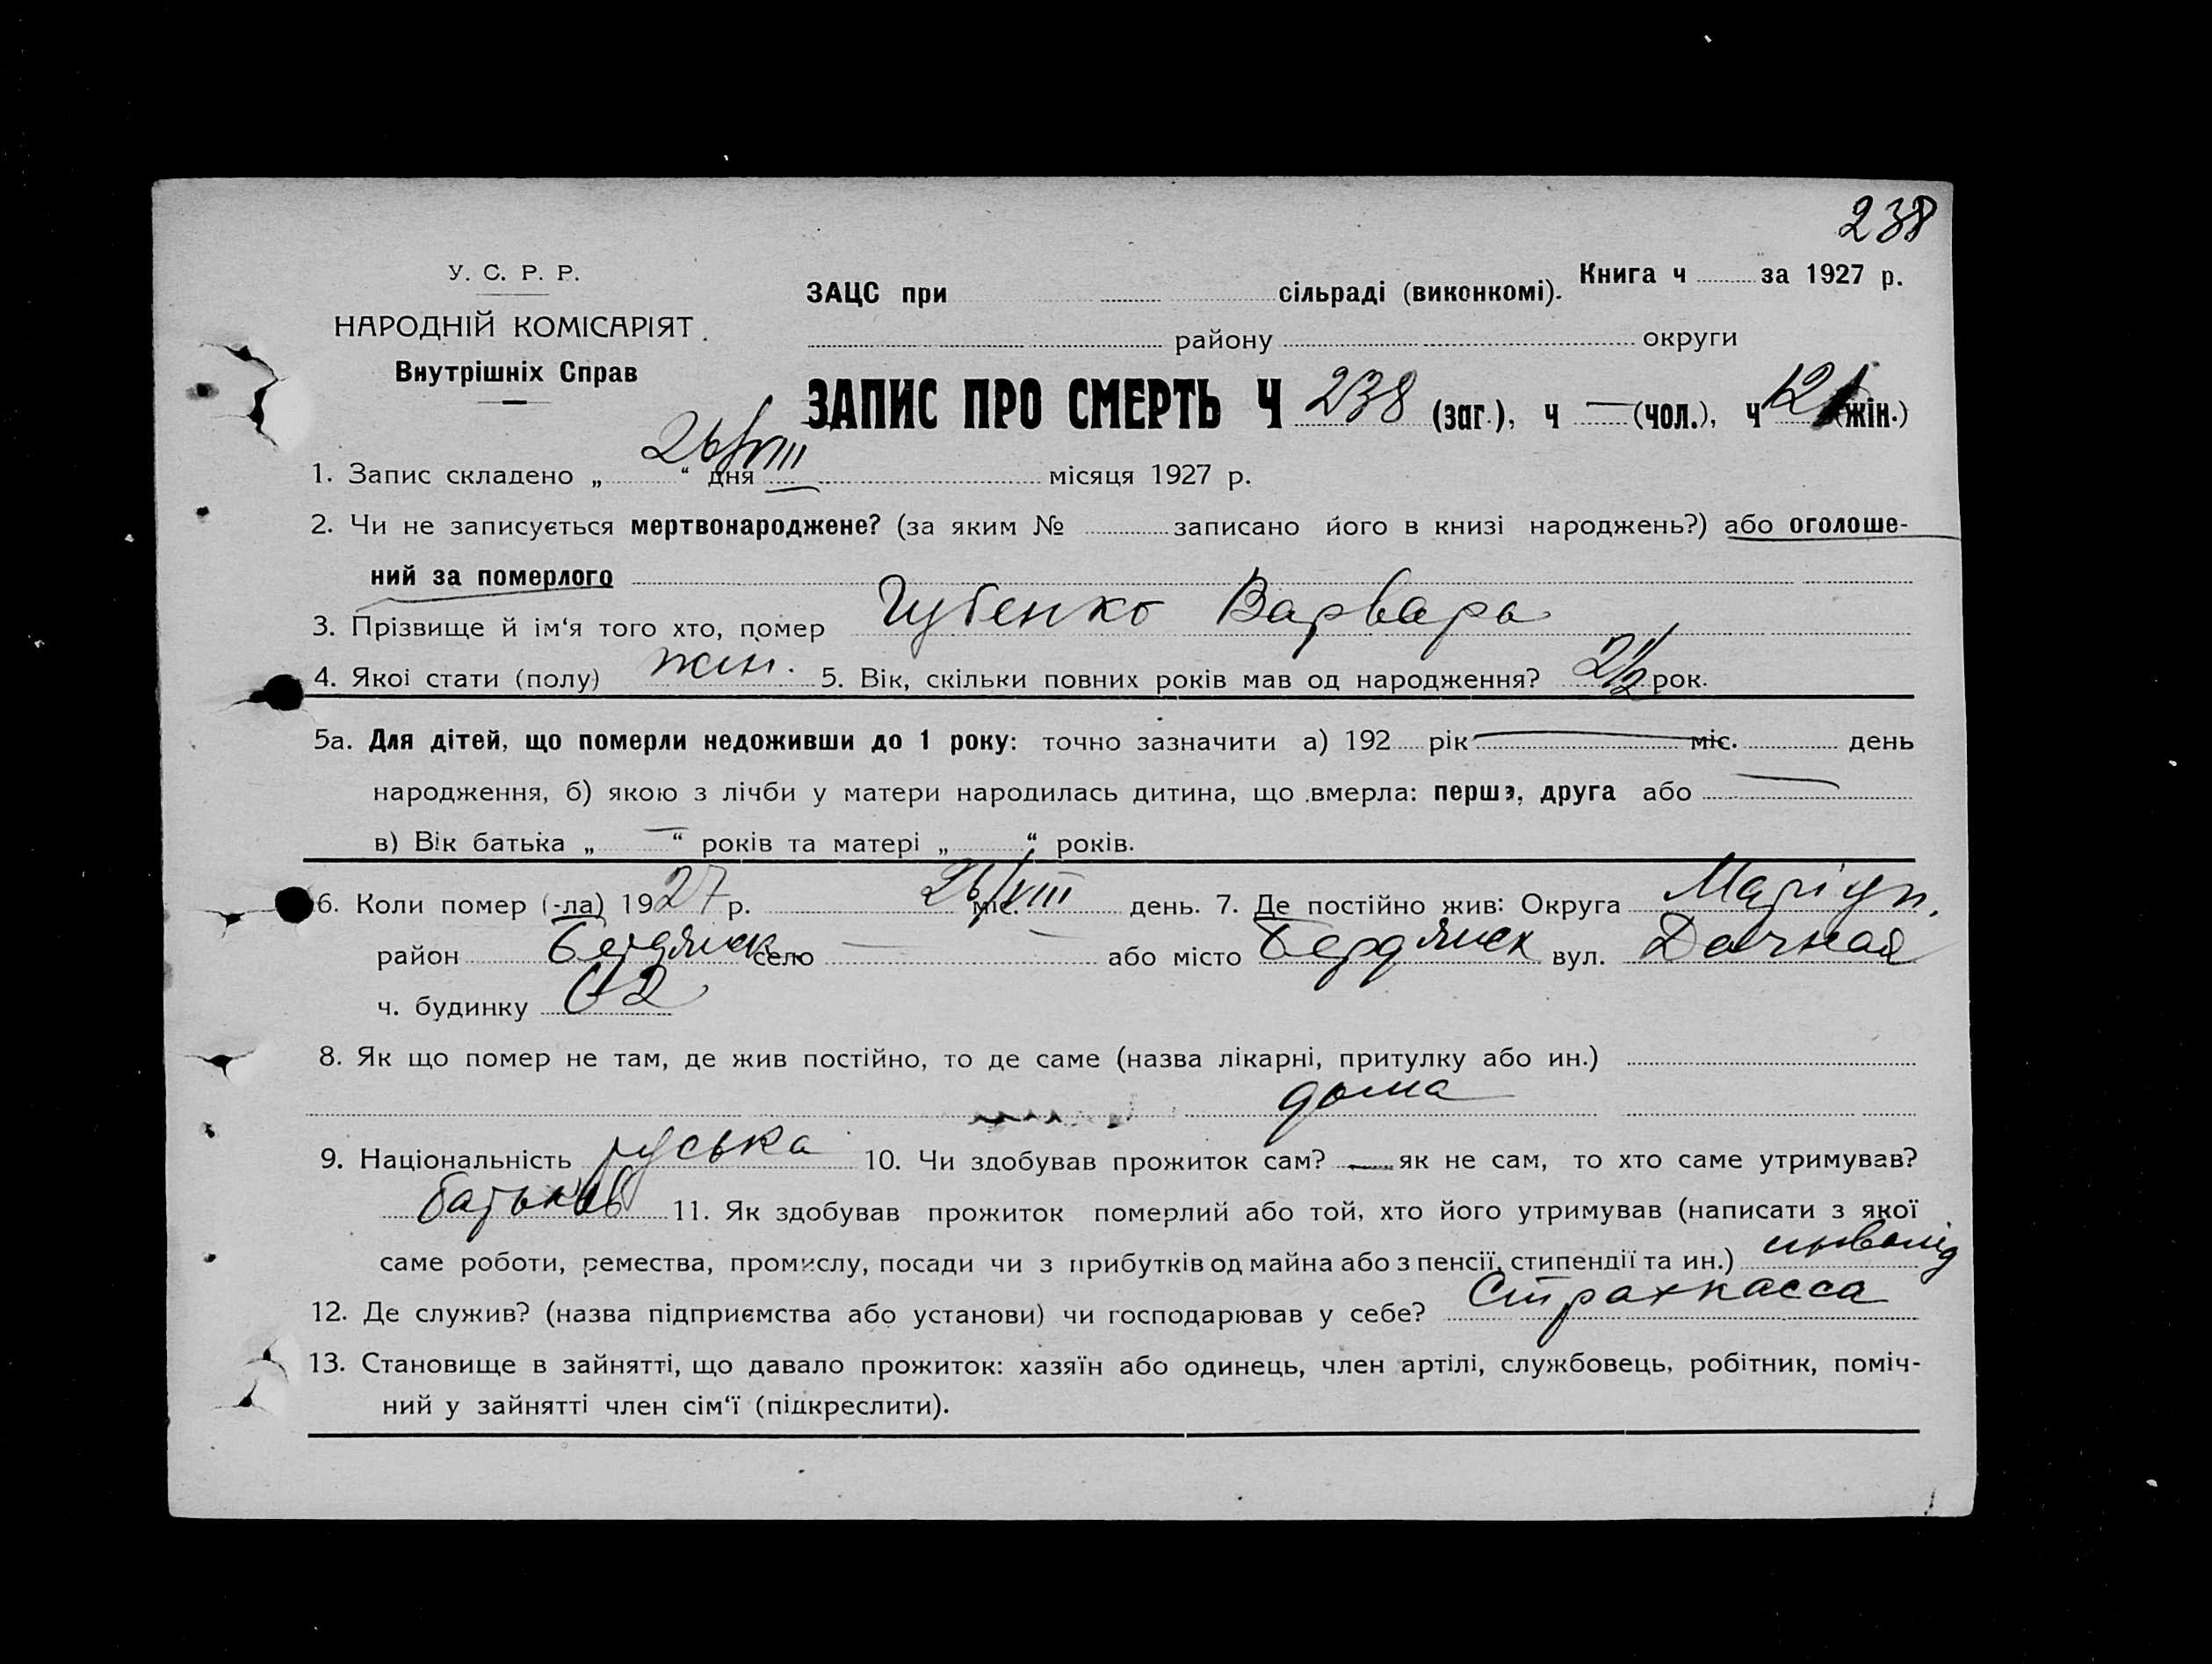 238
У. С. Р. Р.
НАРОДНІЙ КОМІСАРІЯТ
Внутрішніх Справ
ЗАЦС при сільраді (виконкомі). Книга ч за 1927 р.
району округи
ЗАПИС ПРО СМЕРТЬ Ч 238 (заг.), ч — (чол.), ч 121 (жін.)
1. Запис складено „ 26/VIII “ дня місяця 1927 р.
2. Чи не записується мертвонароджене? (за яким № записано його в книзі народжень?) або оголоше-
ний за померлого
3. Прізвище й ім‘я того хто, помер Губенко Варвара
4. Якоі стати (полу) жін. 5. Вік, скільки повних років мав од народження? 2½ рок.
5а. Для дітей, що померли недоживши до 1 року: точно зазначити а) 192 рік — міс. день
народження, б) якою з лічби у матери народилась дитина, що вмерла: перша, друга або —
в) Вік батька „ — “ років та матері „ “ років.
6. Коли помер (-ла) 1927 р. 26/VIII міс. день. 7. Де постійно жив: Округа Маріуп.
район Бердянск село — або місто Бердянск вул. Дачная
ч. будинку
8. Як що помер не там, де жив постійно, то де саме (назва лікарні, притулку або ин.)
дома
9. Національність руська 10. Чи здобував прожиток сам? — як не сам, то хто саме утримував?
батьків 11. Як здобував прожиток померлий або той, хто його утримував (написати з якої
саме роботи, ремества, промислу, посади чи з прибутків од майна або з пенсії, стипендії та ин.) инвалід
12. Де служив? (назва підприємства або установи) чи господарював у себе? Страхкасса
13. Становище в зайнятті, що давало прожиток: хазяїн або одинець, член артілі, службовець, робітник, поміч-
ний у зайнятті член сім‘ї (підкреслити).